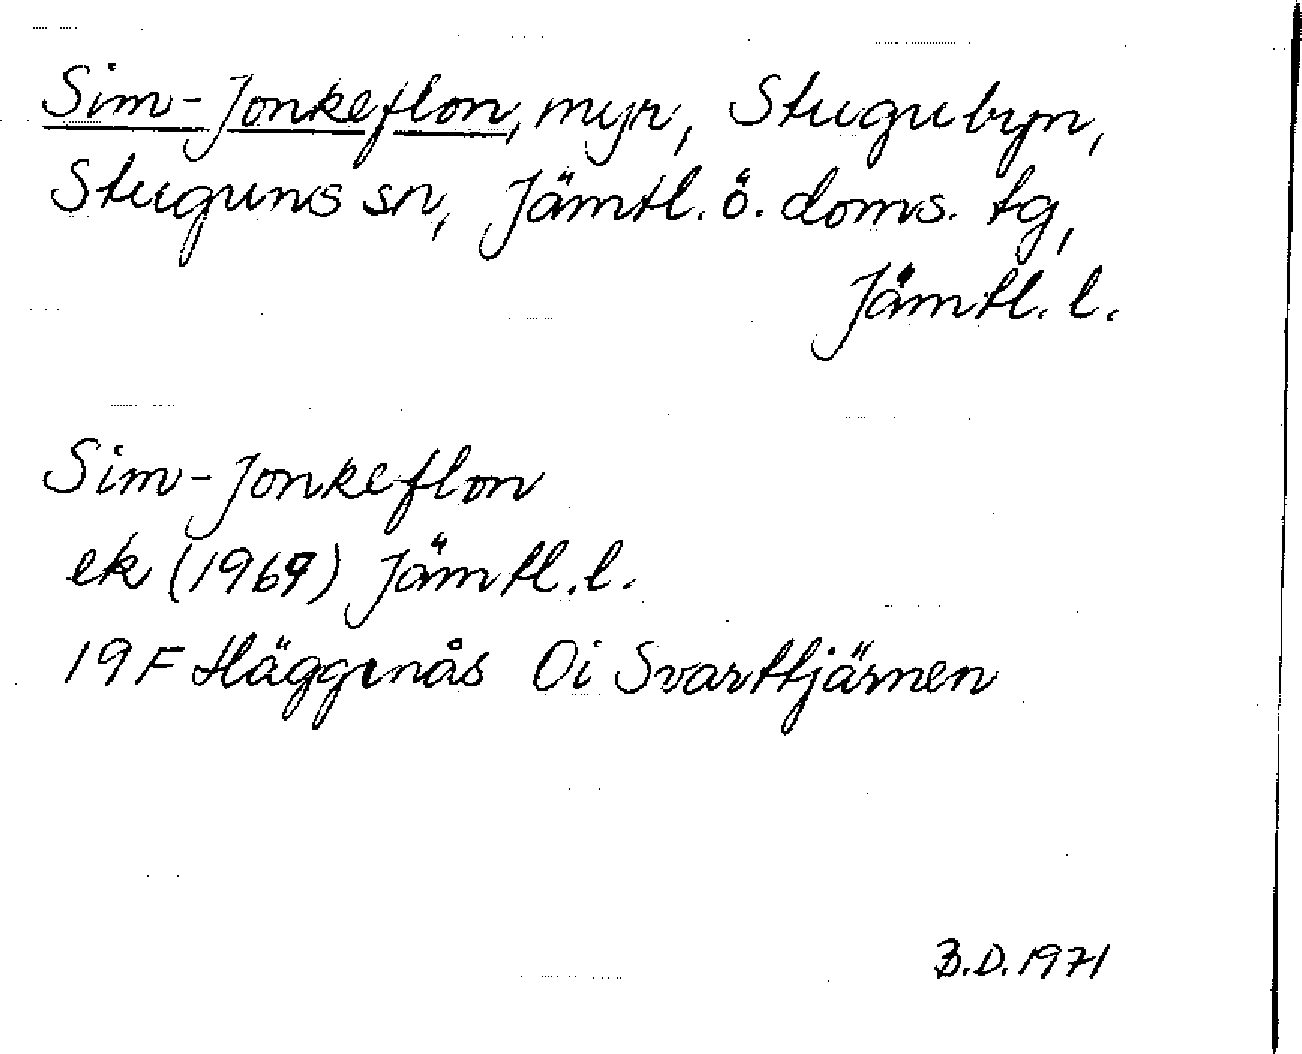 Sim-Jonkeflon, myr, Stugubyn,
Stuguns sn, Jämtl. ö. doms. tg,
Jämtl. l.
Sim-Jonkeflon
ek (1969) Jämtl. l.
19F Häggenås Oi Svarttjärnen
B.D. 1971